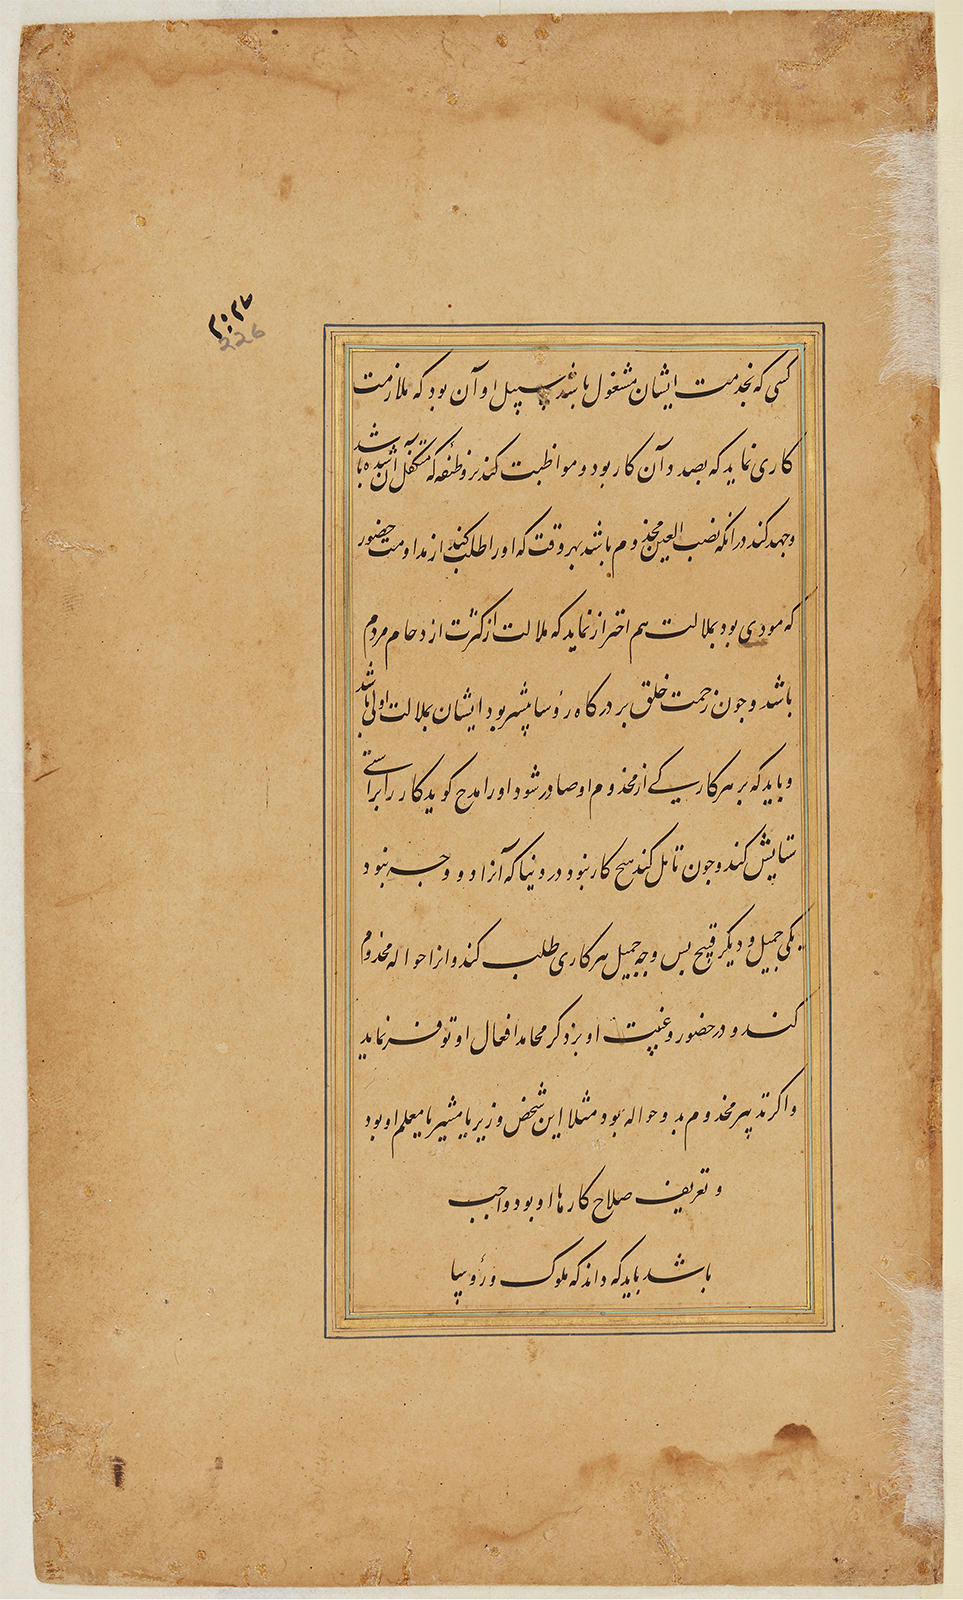 ۲۲۶
226
کسی که بخدمت ایشان مشغول باشد سبیل او آن بود که ملازمت
کاری نماید که بصدد آن کار بود و مواظبت کند بر وظیفه که متکفل آن شده باشد
وجهد کند در آنکه نصب العین مخدوم باشد بهر وقت که او را طلب کند از مداومت حضور
که مودی بود بملالت هم احتراز نماید که ملالت از کثرت ازدحام مردم
باشد و جون زحمت خلق بر درکاه رؤسا بیشتر بود ایشان بملالت اولی باشد
و باید که بر هر کاری که از مخدوم او صادر شود او را مدح کوید کار را براستی
ستایش کند و جون تامل کند هیچ کار نبود در دنیا که آنرا دو وجه نبود
یکی جمیل و دیکر قبیح بس وجه جمیل هر کاری طلب کند و انرا حواله مخدوم
کند و در حضور و غیبت او بر ذکر محامد افعال او توفر نماید
و اکر تدبیر مخدوم بدو حواله بود مثلا این شخص وزیر یا مشیر یا معلم او بود
و تعریف صلاح کارها او بود واجب
باشد باید که داند که ملوک و رؤسا